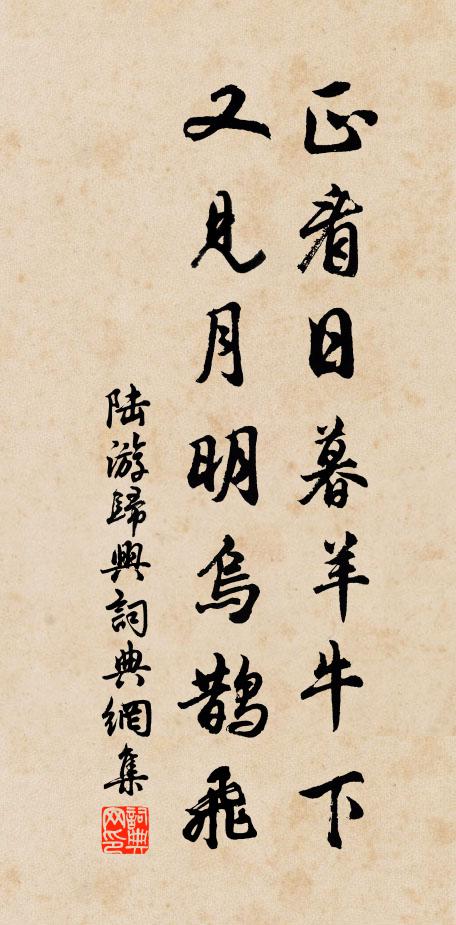 正看日暮羊牛下
又見月明烏鵲飛
陸游歸興詞典網集
詞典網印